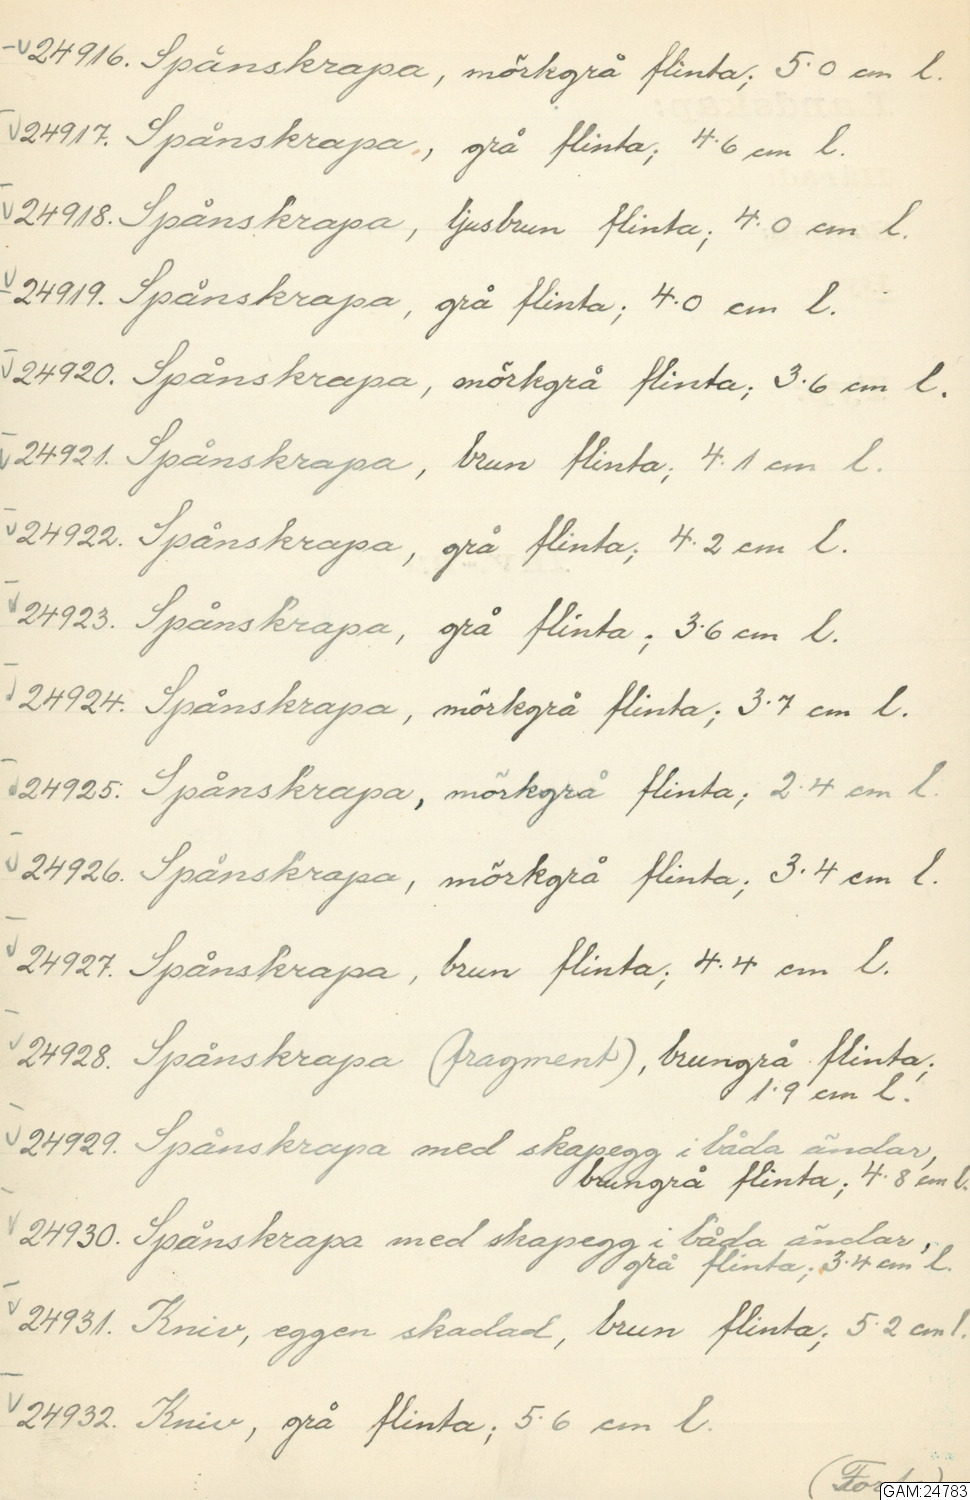 24916. Spånskrapa, mörkgrå flinta; 5.0 cm l.
24917. Spånskrapa, grå flinta; 4.6 cm l.
24918. Spånskrapa, ljusbrun flinta; 4.0 cm l.
24919. Spånskrapa, grå flinta; 4.0 cm l.
24920. Spånskrapa, mörkgrå flinta; 3.6 cm l.
24921. Spånskrapa, brun flinta; 4.1 cm l.
24922. Spånskrapa, grå flinta; 4.2 cm l.
24923. Spånskrapa, grå flinta; 3.6 cm l.
24924. Spånskrapa, mörkgrå flinta; 3.7 cm l.
24925. Spånskrapa, mörkgrå flinta; 2.4 cm l.
24926. Spånskrapa, mörkgrå flinta; 3.4 cm l.
24927. Spånskrapa, brun flinta; 4.4 cm l.
24928. Spånskrapa (fragment), brungrå flinta;
1.9 cm l.
24929. Spånskrapa med skapegg i båda ändar,
brungrå flinta; 4.8 cm l.
24930. Spånskrapa med skapegg i båda ändar,
grå flinta; 3.4 cm l.
24931. Kniv, eggen skadad, brun flinta; 5.2 cm l.
24932. Kniv, grå flinta; 5.6 cm l.
GAM:24783